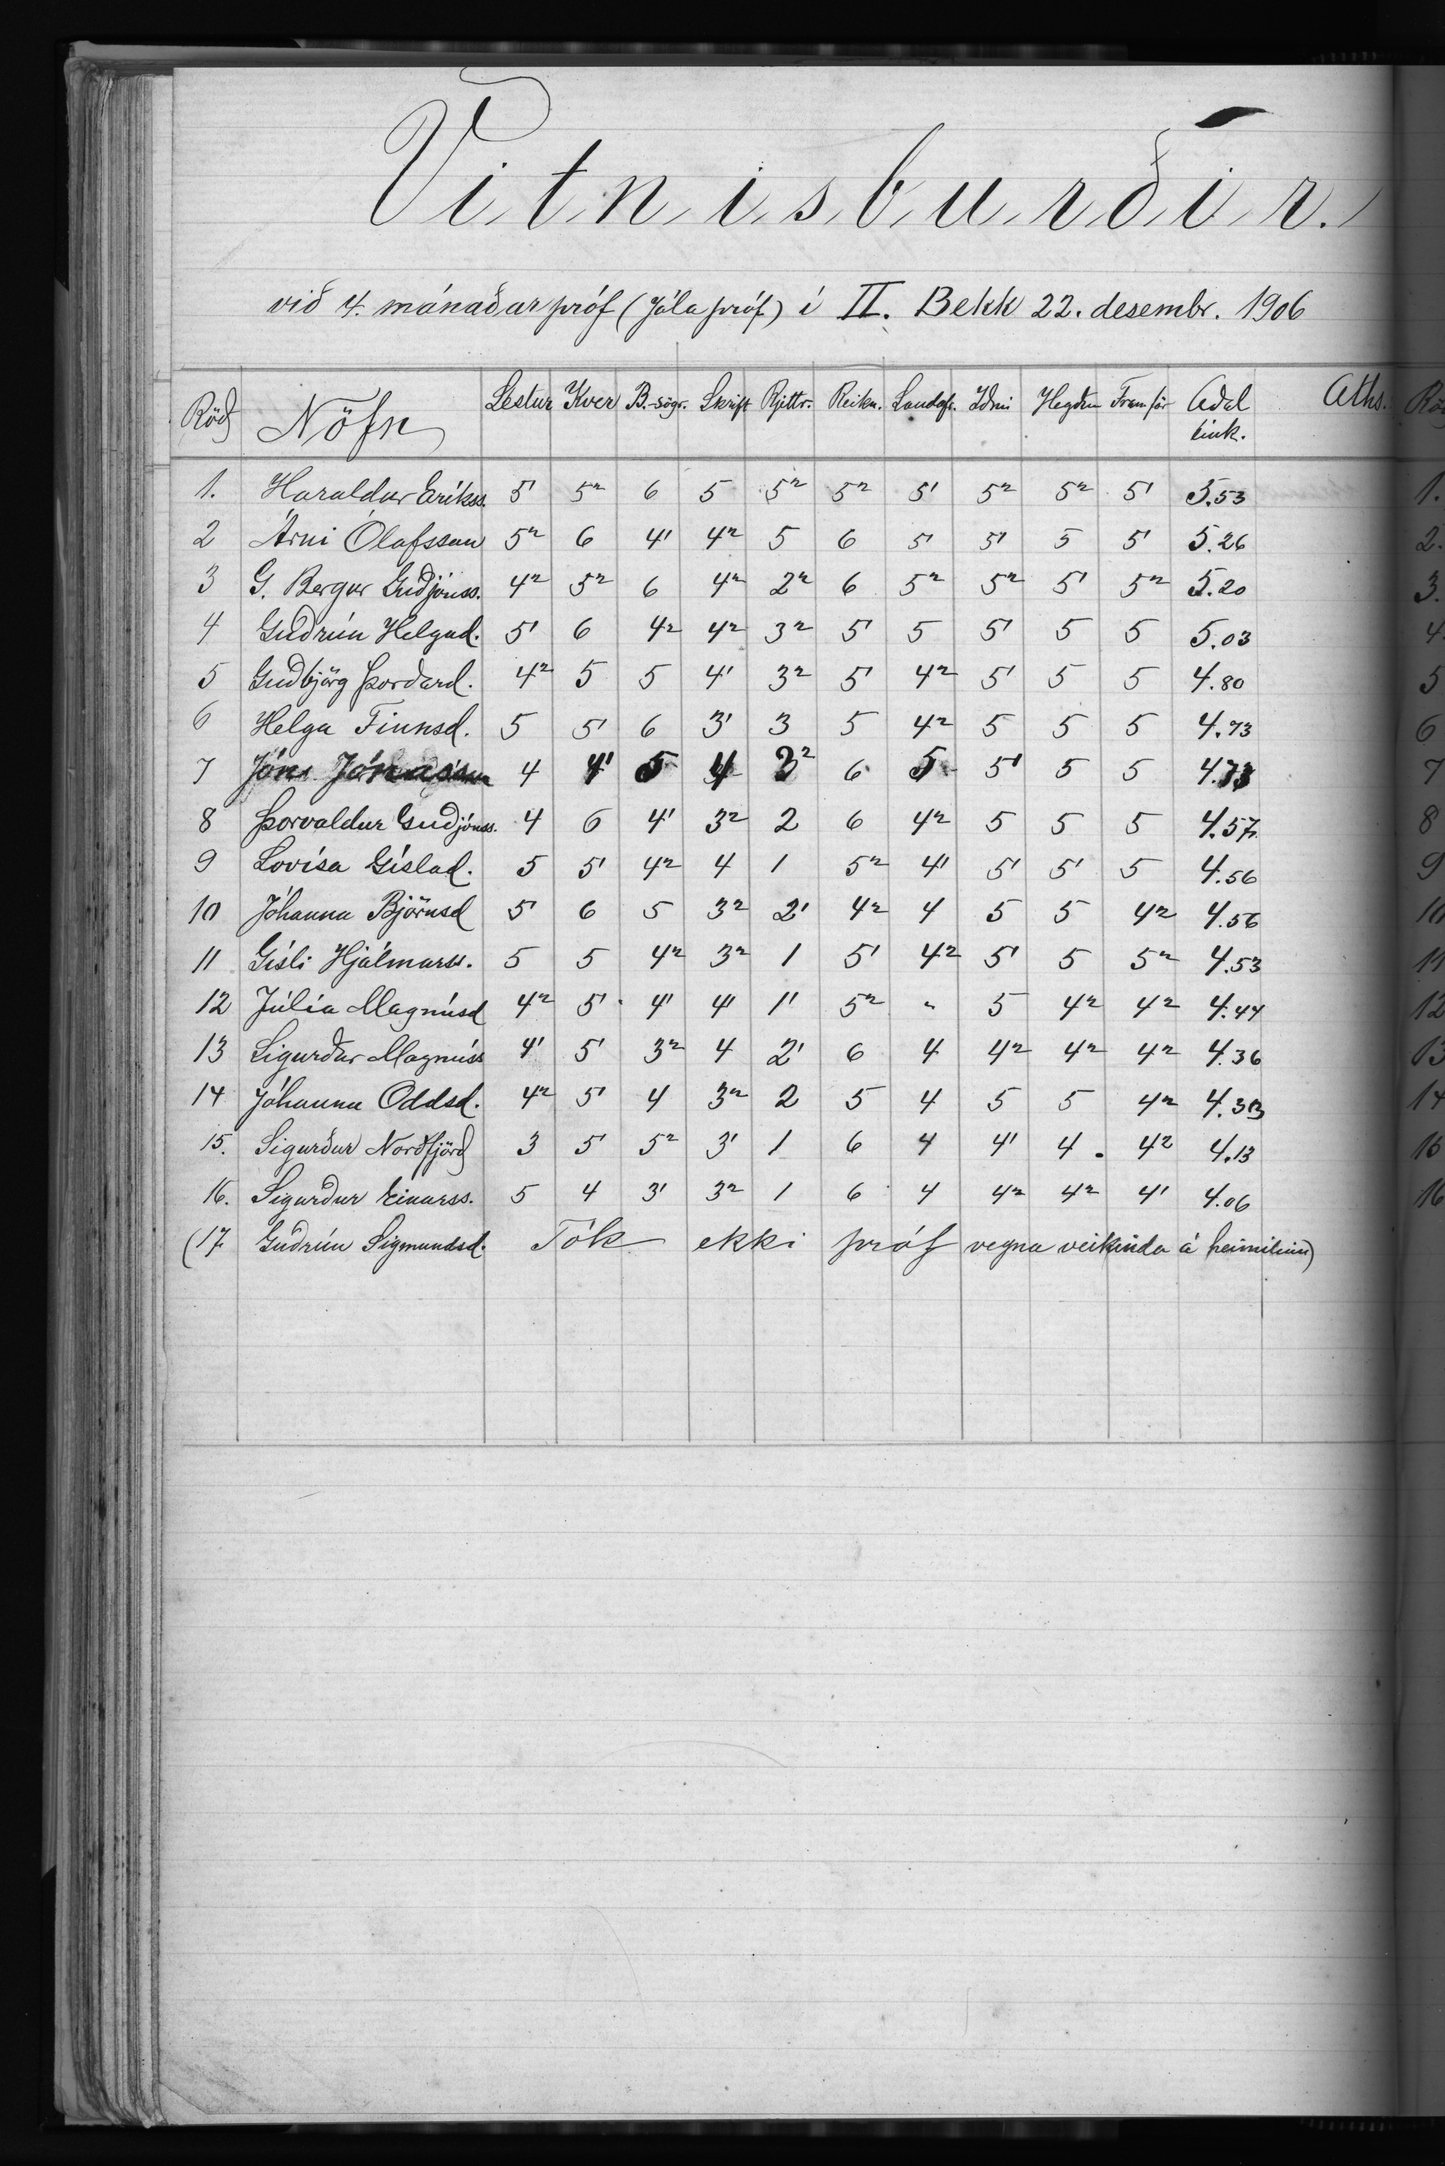 Vitnisburðir.
við 4. mánaðarpróf (Jólapróf) í II. Bekk 22. desembr. 1906
Röð Nöfn Lestur Kver B.-sögr. Skrift Rjittr. Reikn. Landafr. Iðni Hegðun Framför Aðal eink. Aths.
1. Haraldur Eiríkss. 5¹ 5² 6 5 5² 5² 5¹ 5² 5² 5¹ 5.53
2 Árni Ólafsson 5² 6 4¹ 4² 5 6 5¹ 5¹ 5 5¹ 5.26
3 G. Bergur Guðjónss. 4² 5² 6 4² 2² 6 5² 5² 5¹ 5² 5.20
4 Guðrún Helgad. 5¹ 6 4² 4² 3² 5¹ 5 5¹ 5 5 5.03
5 Guðbjörg Þorðard. 4² 5 5 4¹ 3² 5¹ 4² 5¹ 5 5 4.80
6 Helga Finnsd. 5 5¹ 6 3¹ 3 5 4² 5 5 5 4.73
7 Jón Jónasson 4 4¹ 5 4 3² 6 5 5¹ 5 5 4.73
8 Þorvaldur Guðjónss. 4 6 4¹ 3² 2 6 4² 5 5 5 4.57
9 Lovísa Gíslad. 5 5¹ 4² 4 1 5² 4¹ 5¹ 5¹ 5 4.56
10 Jóhanna Björnsd 5¹ 6 5 3² 2¹ 4² 4 5 5 4² 4.56
11 Gísli Hjálmarss. 5 5 4² 3² 1 5¹ 4² 5¹ 5 5² 4.53
12 Júlía Magnúsd 4² 5¹ 4¹ 4¹ 1¹ 5² " 5 4² 4² 4.44
13 Sigurður Magnúss 4¹ 5¹ 3² 4 2¹ 6 4 4² 4² 4² 4.36
14 Jóhanna Oddsd. 4² 5¹ 4 3² 2 5 4 5 5 4² 4.33
15. Sigurður Norðfjörð 3 5¹ 5² 3¹ 1 6 4 4¹ 4. 4² 4.13
16. Sigurður Einarss. 5 4 3¹ 3² 1 6 4 4² 4² 4¹ 4.06
(17 Guðrún Sigmundsd. Tók ekki próf vegna veikinda á heimilinu)